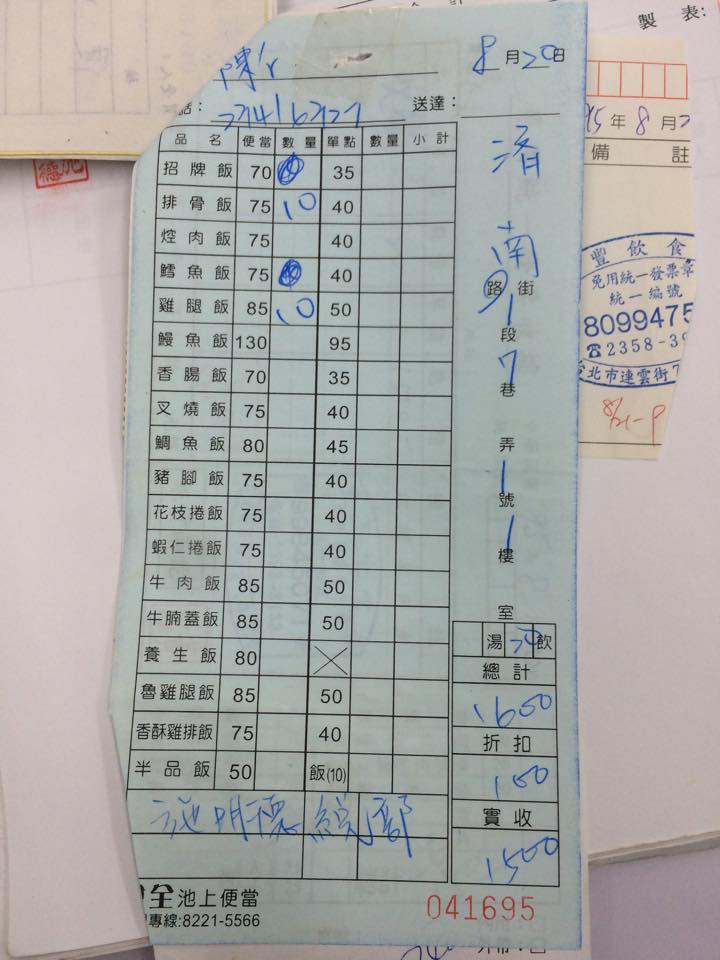 製表:
陳's
8月20日
話: 23416327 送達:
品名 便當 數量 單點 數量 小計
招牌飯 70 35
排骨飯 75 10 40
焢肉飯 75 40
鱈魚飯 75 40
雞腿飯 85 10 50
鰻魚飯 130 95
香腸飯 70 35
叉燒飯 75 40
鯛魚飯 80 45
豬腳飯 75 40
花枝捲飯 75 40
蝦仁捲飯 75 40
牛肉飯 85 50
牛腩蓋飯 85 50
養生飯 80
魯雞腿飯 85 50
香酥雞排飯 75 40
半品飯 50 飯(10)
濟南路街1段7巷弄1號1樓室
湯 飲
總計
1600
折扣
100
實收
1500
施明德總部
全池上便當
專線:8221-5566
041695
95年8月2
備註
豐飲食
免用統一發票章
統一編號
8099475
☎2358-39
台北市連雲街7
8/21-9
德